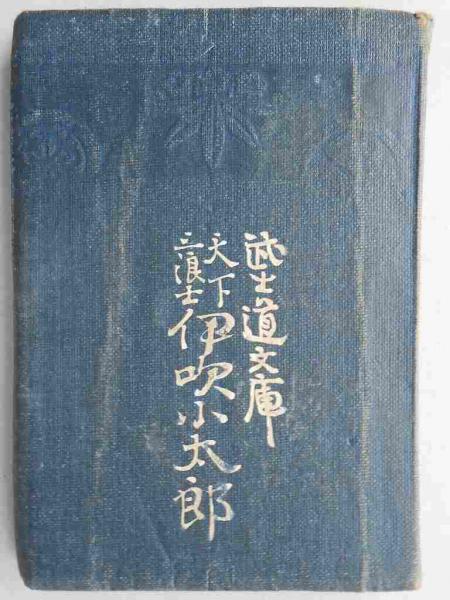 武士道文庫
天下
三浪士
伊吹小太郎